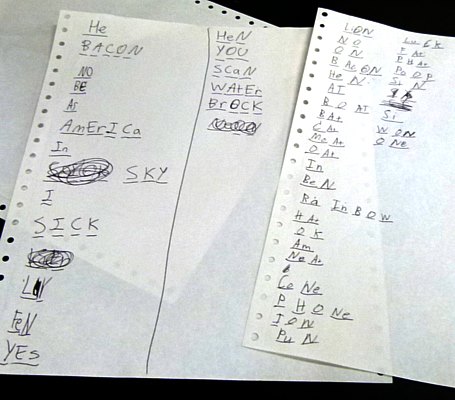 He
BACON
NO
BE
As
AmErICa
In
SKY
I
SICK
FeN
YES
HeN
YOU
SCaN
WAtEr
BrOCK
LiON
NO
ON
BACON
HeN
AT
BOAT
BAt
CAt
MeAt
OAt
In
BeN
RaInBOW
HAt
OK
Am
NeAt
CoNe
PHONe
ION
PuN
FAt
PHAt
POOP
SiN
Si
WON
ONe